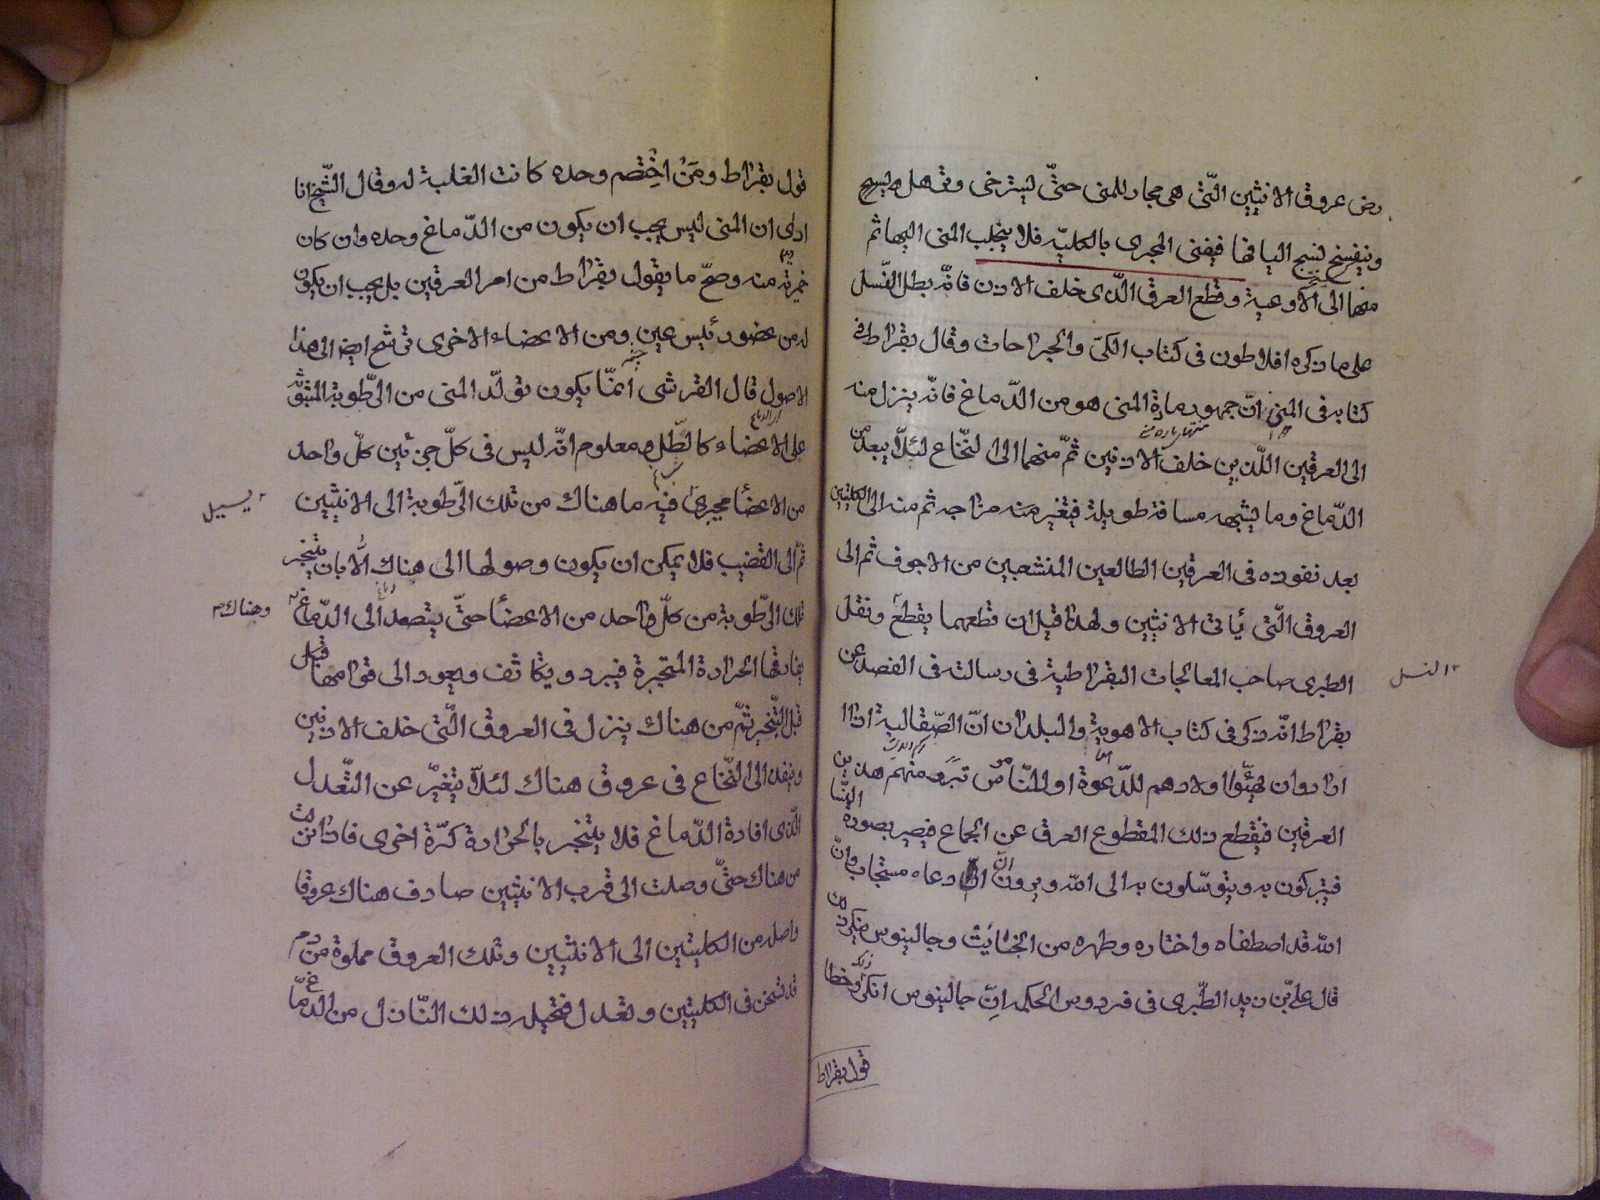 رض عروق الانثيين الّتى هى مجار للمنى حتّى ليسترخى وقد هل
ويتفسخ ليسج اليافها فيفنى المجرى بالكليّه فلا ينجلب المنى اليها ثم
منها الى الاوعية وقطع العرق الّذى خلف الاذن فانّه يطل النّسل
على ما ذكره افلاطون فى كتاب الكىّ والجراحات وقال بقراط فى
كتابه فى المنى انّ جمهور مادة المنى هو من الدّماغ فانّه ينزل منه
الى العرقين اللّذين خلف الاذنين ثمّ منهما الى النّخاع لئلّا يبعد من
الدّماغ وما يشبهه مسافة طويلة فيتغير منه مزاجه ثم منه الى الكليتين
بعد نفوذه فى العرقين الطالعين المنشعبين من الاجوف ثم الى
العروق الّتى يأتى الانثيين ولهذا قيل ان قطعهما يقطع ونقل
النسل
الطبرى صاحب المعالجات البقراطية فى رسالته فى الفصد عن
بقراط انّه ذكر فى كتاب الاهوية والبلدان انّ الصّقالبة اذا
ارادوان يهيّئوا اولادهم للدّعوة او للنّاس منهم هذين
العرقين فيقطع ذلك المقطوع العرق عن الجماع فيصير بصورة النّسا
فيتبركون به ويتوسّلون به الى الله ويرون انّ دعاءه مستجاب وانّ
الله قد اصطفاه واختاره وطهره من الخبائث وجالينوس ينكر ذلك
قال علىّ بن زيد الطّبرى فى فردوس الحكمه انّ جالينوس انكر وخطا
قول بقراط
قول بقراط ومَنْ اخْتِصم وحده كانت الغلبة له وقال الشّيخ انا
ارى ان المنى ليس يجب ان يكون من الدّماغ وحده وان كان
خميرته منه وصحّ ما يقول بقراط من امر العرقين بل يجب ان يكون
له من عضو رئيس عين ومن الاعضاء الاخرى ترشح ايض الى هذا
الاصول قال القرشى انمّا يكون تولّد المنى من الرّطوبة المنبثّة
على الاعضاء كالطّل ومعلوم انّه ليس فى كلّ جزئين كلّ واحد
من الاعضاء مجرى فيه ما هناك من تلك الرّطوبة الى الانثيين
يسيل
ثمّ الى القضيب فلا يمكن ان يكون وصولها الى هناك الّا بان يتبخر
تلك الرّطوبة من كلّ واحد من الاعضاء حتّى يتصعد الى الدّماغ
وهناك
يفارقها الحرارة المتبخرة فيبرد ويتكاثف ويعود الى قوامها
قبل التّبخر ثمّ من هناك ينزل فى العروق الّتى خلف الاذنين
وينفذ الى النّخاع فى عروق هناك لئلّا يتغيّر عن التّعدل
الّذى افادة الدّماغ فلا يتبخر بالحرارة كرّة اخرى فاذا نزلت
من هناك حتّى وصلت الى قرب الانثيين صادف هناك عروقا
واصله من الكليتين الى الانثيين وتلك العروق مملوة من دم
قد تسخن فى الكليتين وتعدل فتحيله ذلك النّازل من الدّماغ